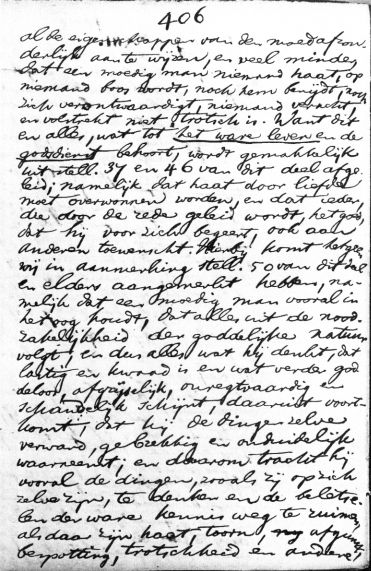 406
al de eigenschappen van den moed afzon-
derlijk aan te wijzen, en veel minder
dat een moedig man niemand haat, op
niemand boos wordt, noch hem benijdt, noch
zich verontwaardigt, niemand veracht,
en volstrekt niet trotsch is. Want dit
en alles, wat tot het ware leven en de
godsdienst behoort, wordt gemakkelijk
uit stell. 37 en 46 van dit deel afge-
leid; namelijk dat haat door liefde
moet overwonnen worden, en dat ieder,
die door de rede geleid wordt, het goed,
dat hij voor zich begeert, ook aan
anderen toewenscht. Hierbij komt hetgeen
wij in aanmerking stell. 50 van dit deel
en elders aangemerkt hebben, na-
melijk dat een moedig man vooral in
het oog houdt, dat alles uit de nood-
zakelijkheid der goddelijke natuur
volgt, en dus alles wat hij denkt, dat
lastig en kwaad is en wat verder god-
deloos, afgrijselijk, onregtvaardig en
schandelijk schijnt, daaruit voort-
komt, dat hij de dingen zelve
verward, gebrekkig en onduidelijk
waarneemt; en daarom tracht hij
vooral de dingen, zooals zij op zich
zelve zijn, te denken en de beletse-
len der ware kennis weg te ruimen,
als daar zijn haat, toorn, afgunst,
bespotting, trotschheid en andere,